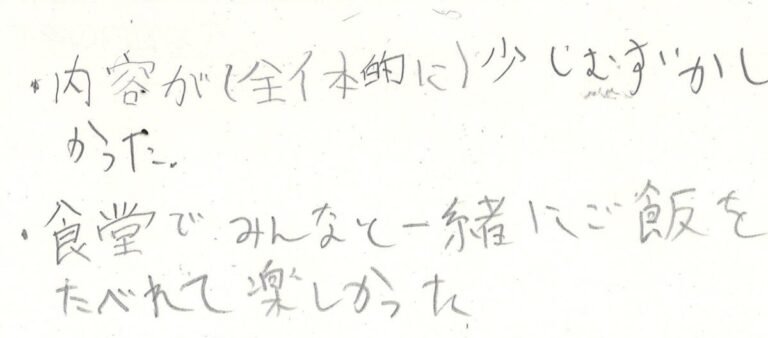 ・内容が(全体的に)少しむずかし
かった。
・食堂でみんなと一緒にご飯を
たべれて楽しかった